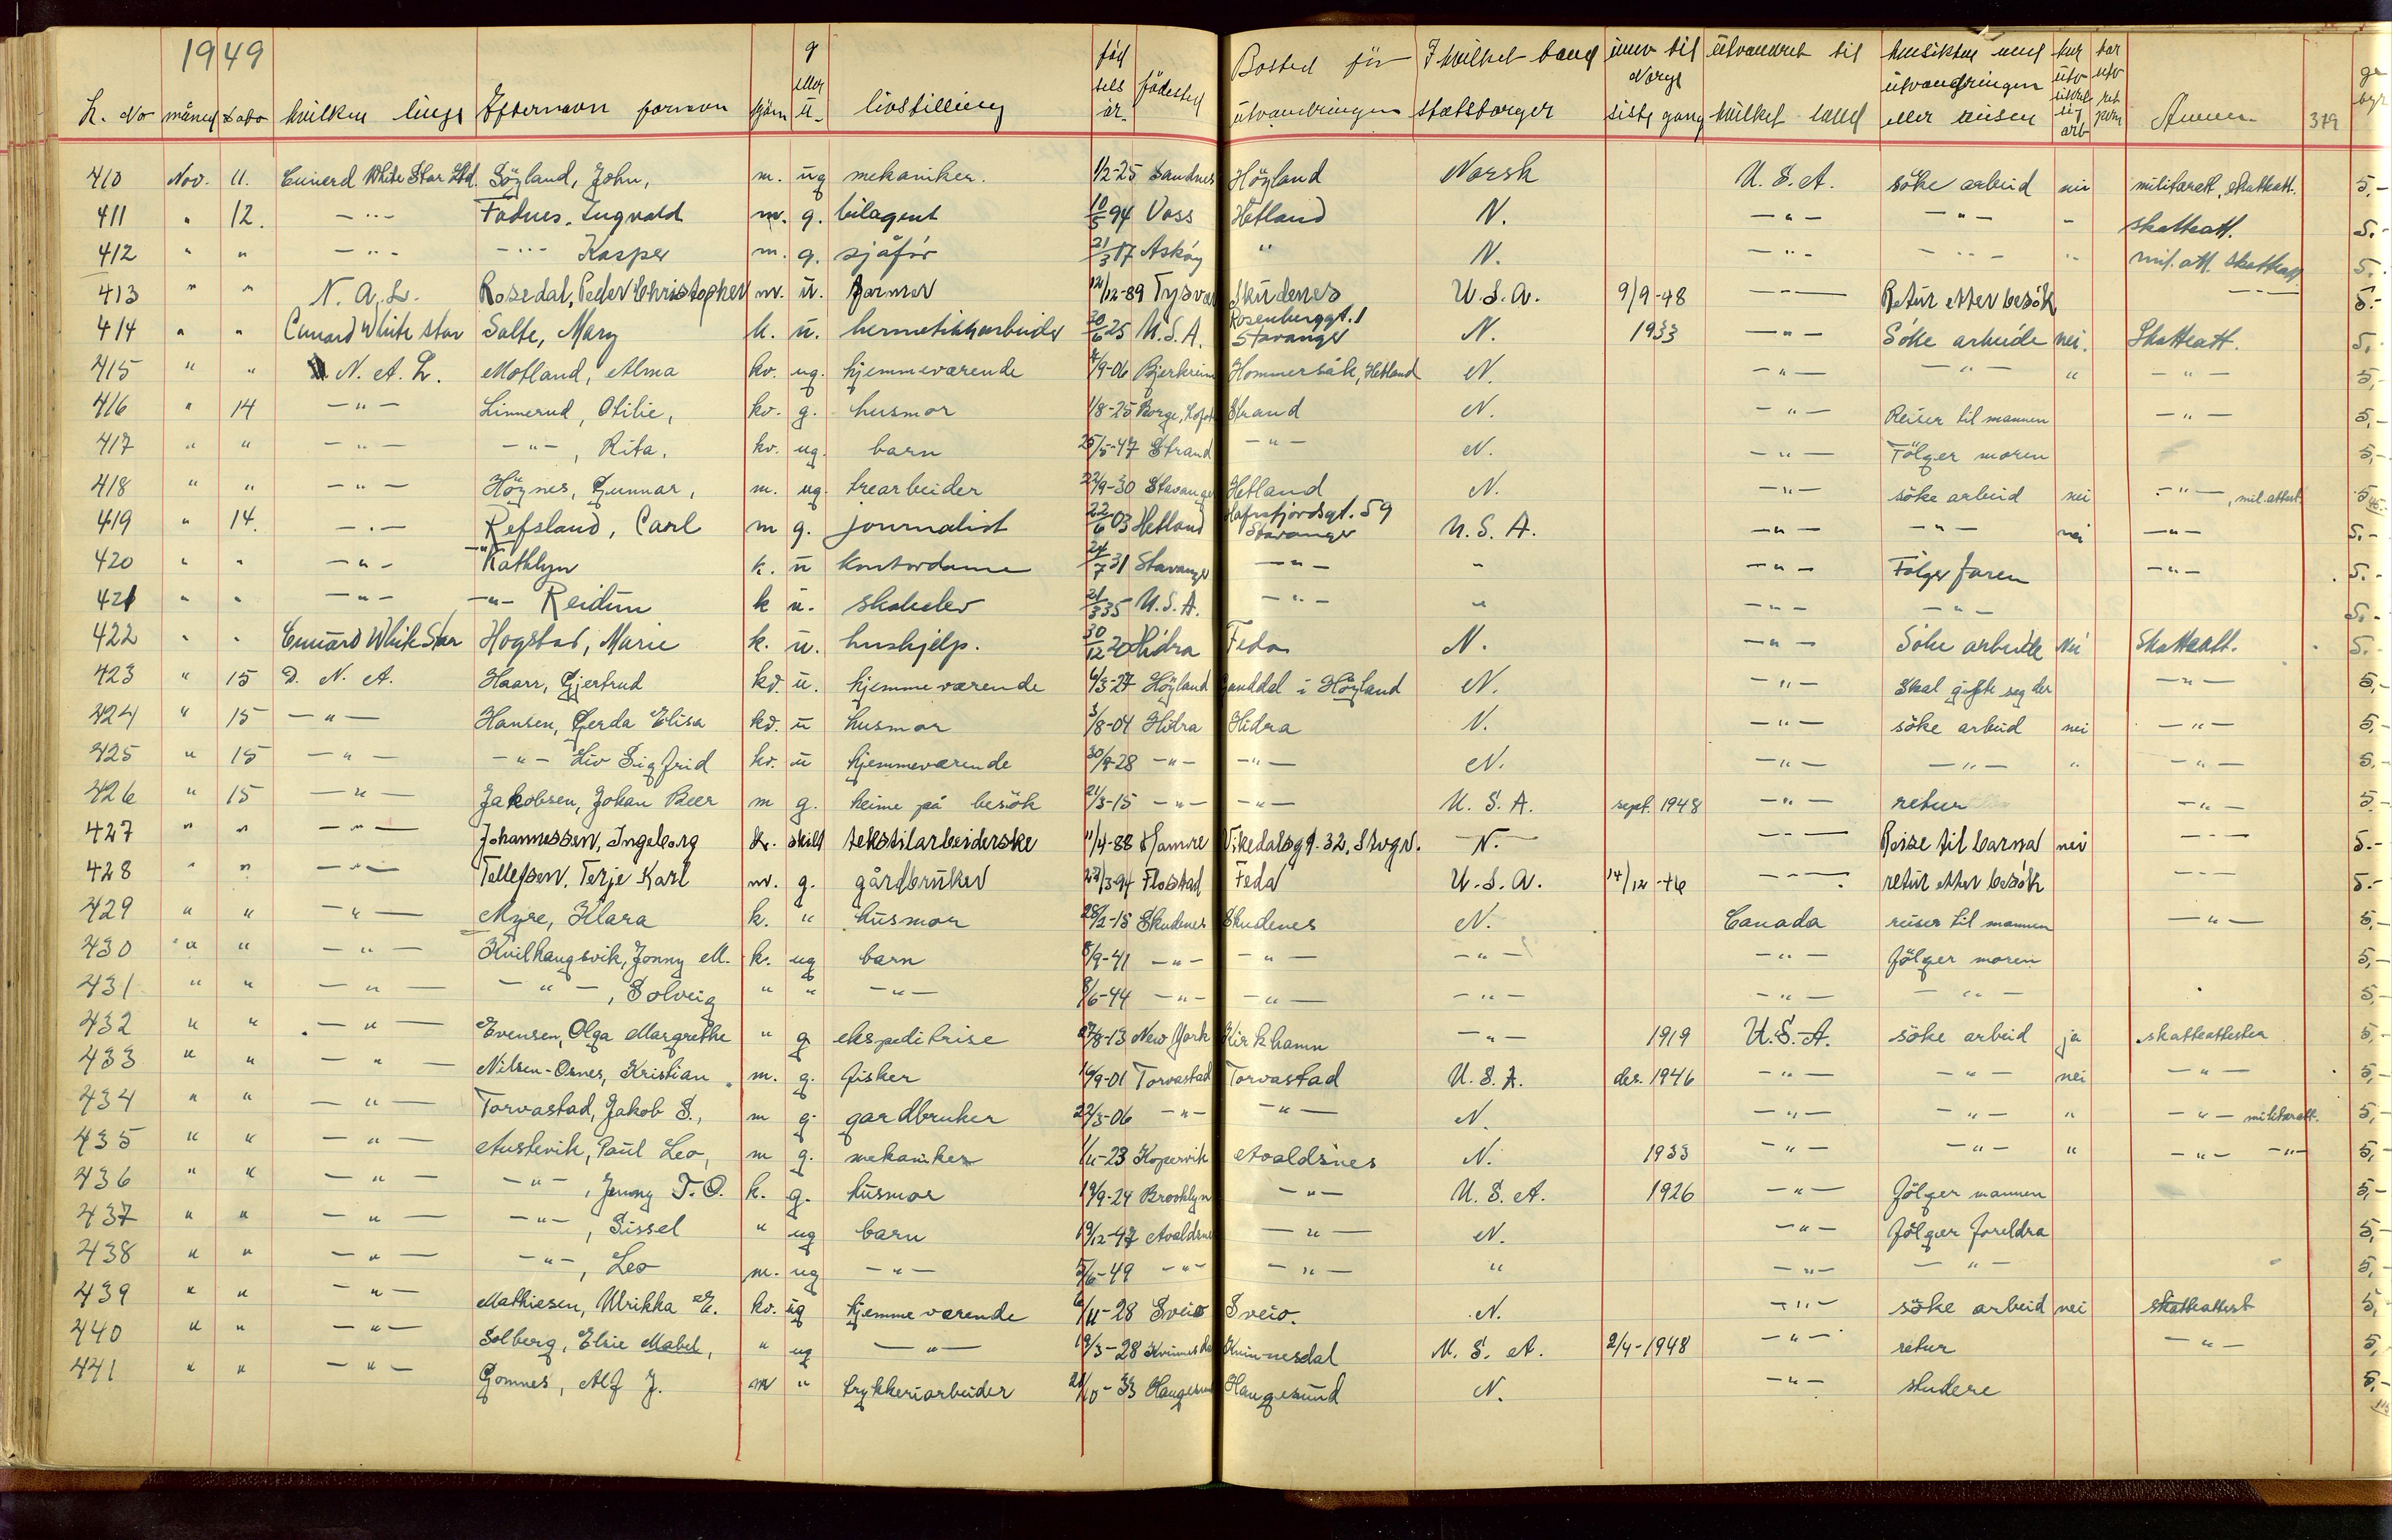 1949
L. No måned dato hvilken linje Efternavn fornavn kjøn g eller u. livstilling fødsels år. fødested Bosted før utvandringen I hvilket land statsborger innv til Norge siste gang utvandret til hvilket land hensikten med utvandringen eller reisen Annen 379 gebyr
410 Nov. 11. Cunerd White Star Ltd. Söyland, John, m. ug mekaniker. 1/2-25 Sandnes Höyland Norsk U.S.A. söke arbeid nei militæratt, skatteatt. 5,-
411 " 12. -"- Fadnes, Ingvald m. g. bilagent 10/5 94 Voss Hetland N. -"- -"- - skatteatt. 5.-
412 " " -"- -"- Kasper m. g. sjåfør 21/3 17 Askøy " N. -"- -"- " mil. att. skatteatt 5.
413 " " N. A. L. Rosedal, Peder Christopher m. u. farmer 12/12-89 Tysvær Skudenes U.S.A. 9/9-48 -"- Retur etter besök -"- 5.-
414 " " Cunard White Star Salte, Mary k. u. hermetikkarbeider 20/6 25 U.S.A. Rosenberggt. 1 Stavanger N. 1933 -"- Söke arbeide nei. Skatteatt. 5.
415 " " N. A. L. Motland, Alma kv. ug. hjemmeværende 4/9-06 Bjerkreim Hommersåk, Hetland N. -"- -"- " -"- 5,-
416 " 14 -"- Linnerud, Otilie, kv. g. husmor 1/8-25 Borge, Lofot Strand N. -"- Reiser til mannen -"- 5,-
417 " " -"- -"-, Rita, kv. ug. barn 25/5-47 Strand -"- N. -"- Fölger moren 5,-
418 " " -"- Höynes, Gunnar, m. ug. trearbeider 22/9-30 Stavanger Hetland N. -"- söke arbeid nei -"-, mil.attest 5
419 " 14. -"- Refsland, Carl m g. journalist 22/6 03 Hetland Hafrsfjordsgt. 59 Stavanger U.S.A. -"- -"- nei -"- 5.-
420 " " -"- -"- Kathlyn k. u kontordame 24/7 31 Stavanger -"- " -"- Følger faren -"- 5.-
421 " " -"- -"- Reidun k u. skoleelev 21/3 35 U.S.A. -"- " -"- -"- 5.-
422 " " Cunard White Star Hogstad, Marie k. u. hushjelp. 30/12 20 Hidra Feda N. -"- Söke arbeide Nei Skatteatt. 5.
423 " 15 D. N. A. Haarr, Gjertrud kv. u. hjemmeværende 6/3-27 Höyland Ganddal i Höyland N. -"- Skal gifte seg der -"- 5,-
424 " 15 -"- Hansen, Gerda Elisa kv. u husmor 3/8-04 Hidra Hidra N. -"- söke arbeid nei -"- 5,-
425 " 15 -"- -"- Liv Sigfrid kv. u hjemmeværende 30/8-28 -"- -"- N. -"- -"- " -"- 5,-
426 " 15 -"- Jakobsen, Johan Beer m g. heime på besök 21/3-15 -"- -"- U.S.A. sept. 1948 -"- retur -"- 5.
427 " " -"- Johannessen, Ingeborg k. skilt tekstilarbeiderske 11/4-88 Hamre Vikedalsgt. 32, Stvgr. N. -"- Reise til barna nei -"- 5.-
428 " " -"- Tellefsen, Terje Karl m. g. gårdbruker 27/3-94 Flostad Feda U.S.A. 14/12-46 -"- retur etter besök -"- 5.-
429 " " -"- Myre, Klara k. " husmor 28/2-15 Skudenes Skudenes N. Canada reiser til mannen -"- 5,-
430 " " -"- Kvilhaugsvik, Jonny M. k. ug barn 8/9-41 -"- -"- -"- -"- fölger moren 5,-
431 " " -"- -"-, Solveig " " -"- 8/6-44 -"- -"- -"- -"- -"- 5,-
432 " " -"- Evensen, Olga Margrethe " g ekspeditrise 27/8-13 New York Kirkhamn -"- 1919 U.S.A. söke arbeid ja skatteattester 5,-
433 " " -"- Nilsen-Osnes, Kristian m. g. fisker 19/9-01 Torvastad Torvastad U.S.A. des. 1946 -"- -"- nei -"- 5,-
434 " " -"- Torvastad, Jakob S., m g. gardbruker 22/3-06 -"- -"- N. -"- -"- " -"- militæratt. 5,-
435 " " -"- Austevik, Paul Leo, m g. mekaniker 1/11-23 Kopervik Avaldsnes N. 1933 -"- -"- " -"- -"- 5,-
436 " " -"- -"-, Jenny T. O. k. g. husmor 19/9-24 Brooklyn -"- U.S.A. 1926 -"- fölger mannen 5,-
437 " " -"- -"-, Sissel " ug barn 19/12-47 Avaldsnes -"- N. -"- fölger foreldra 5,-
438 " " -"- -"-, Leo m. ug -"- 5/6-49 -"- -"- " -"- -"- 5,-
439 " " -"- Mathiesen, Ulrikka E. kv. ug hjemmeværende 6/11-28 Sveio Sveio. N. -"- söke arbeid nei skatteattest 5,
440 " " -"- Solberg, Elsie Mabel, " ug -"- 19/3-28 Kvinnesdal Kvinnesdal U.S.A. 2/4-1948 -"- retur -"- 5,
441 " " -"- Gomnes, Alf J. m " trykkeriarbeider 28/10-33 Haugesund Haugesund N. -"- studere 5,-